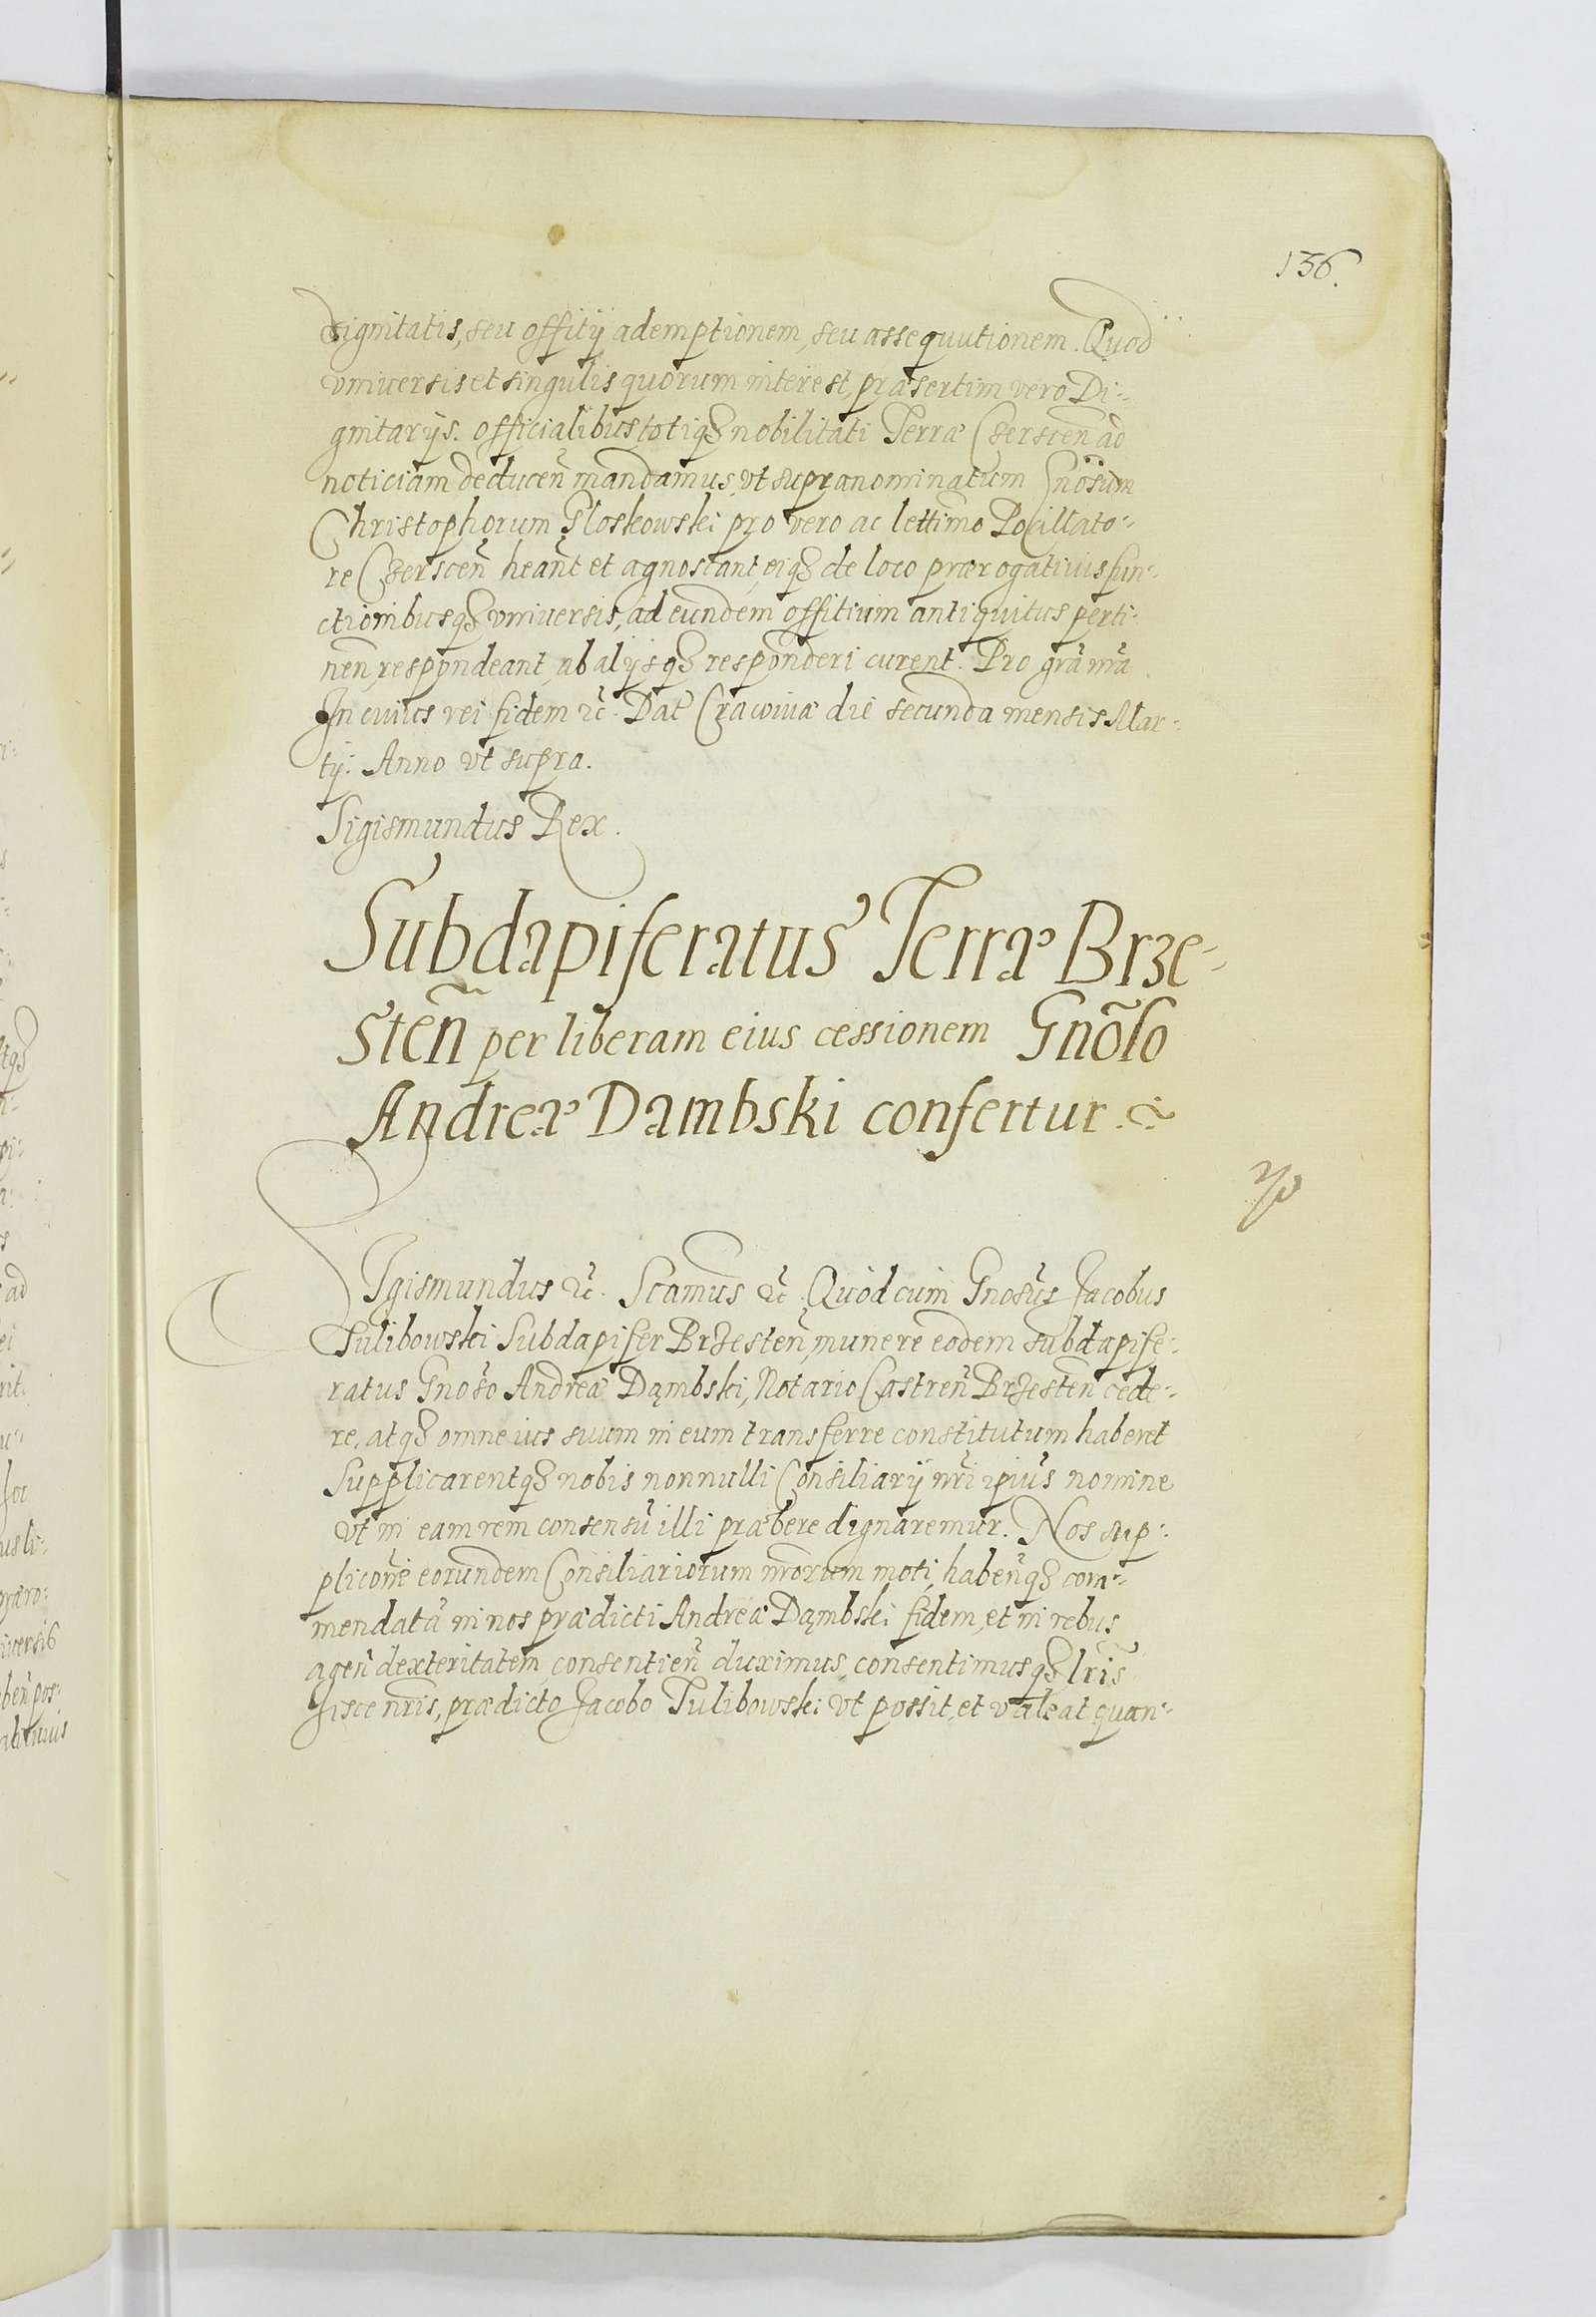 136.
dignitatis, seu offitij ademptionem, seu assequutionem. Quod
vniuersis et singulis quorum interest, præsertim vero Di-
gnitarijs. officialibus totiq3 nobilitati Terræ Czerscen̄ ad
noticiam deducen̄ mandamus, vt supranominatum Gnōsum
Christophorum Gloskowski pro vero ac lettimo Pocillato-
re Czerscen̄ heant̄ et agnoscant, eiq3 de loco prærogatiuis fun-
ctionibusq3 vniuersis, ad eundem offitium antiquitus perti-
nen̄, respondeant, ab alijsq3 responderi curent. Pro grā nr̄a
In cuius rei fidem &c̄. Dat̄ Cracouiæ die secunda mensis Mar-
tij. Anno vt supra.
Sigismundus Rex.
Subdapiferatus Terræ Brze-
sten̄ per liberam eius cessionem Gnōso
Andreæ Dambski confertur
SIgismundus &c̄. Scamus &c̄. Quod cum Gnosūs Jacobus
Sulibowski Subdapifer Brzesten̄, munere eodem subdapife-
ratus Gnosō Andreæ Dąmbski, Notario Castren̄ Brzesten̄ cede-
re, atq3 omne ius suum in eum transferre constitutum haberet
Supplicarentq3 nobis nonnulli Consiliarij nr̄i ipiūs nomine
vt in eam rem consensū illi præbere dignaremur. Nos sup-
plicone̅ eorundem Consiliariorum nr̄orum moti, haben̄q3 com-
mendatā in nos prædicti Andreæ Dąmbski fidem, et in rebus
agen̄ dexteritatem, consentien̄ duximus, consentimusq3 lr̄is
hisce nr̄is, prædicto Jacobo Tulibowski vt possit, et valeat quan-